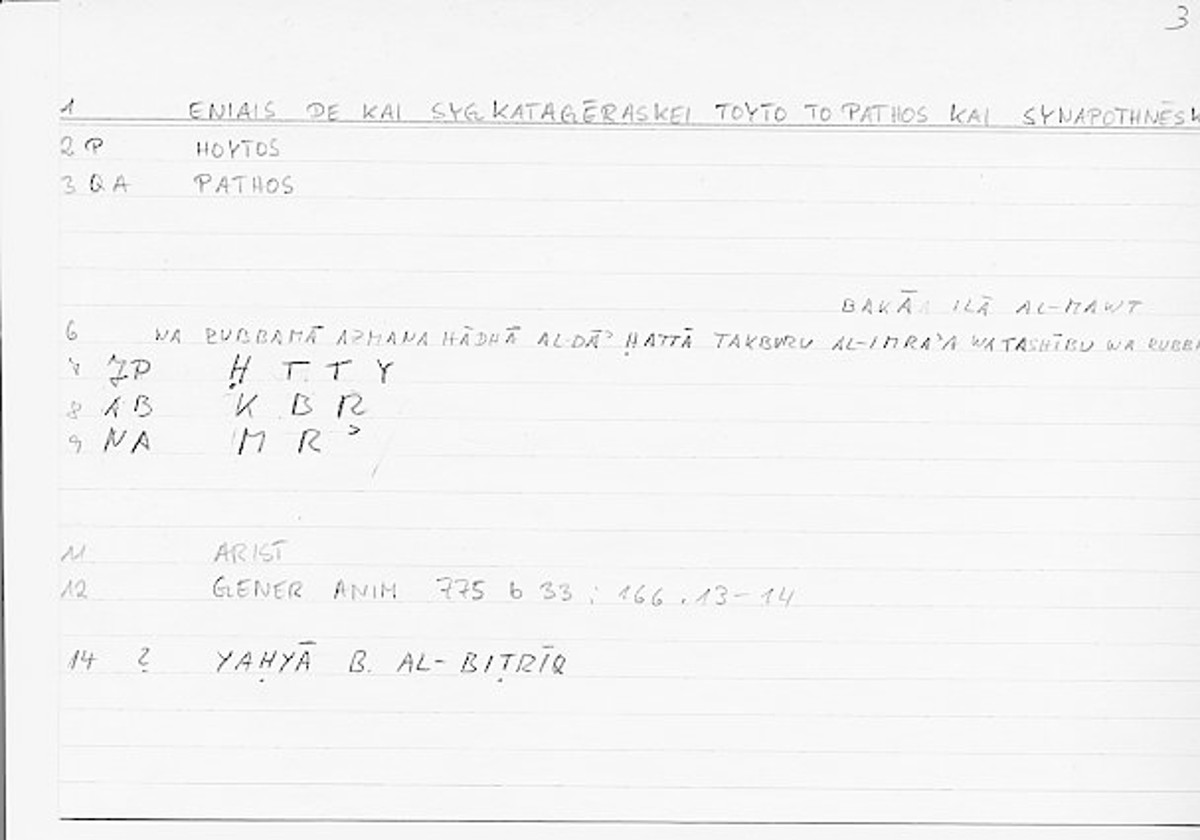 3
1 ENIAIS DE KAI SYGKATAGĒRASKEI TOYTO TO PATHOS KAI SYNAPOTHNĒSK
2 P HOYTOS
3 QA PATHOS
BAKĀ ILĀ AL-MAWT
6 WA RUBBAMĀ AZMANA HĀDHĀ AL-DĀʾ ḤATTĀ TAKBURU AL-IMRAʾA WATASHĪBU WA RUBB
7 JP Ḥ T T Y
8 AB K B R
9 NA M R ʾ
11 ARIST
12 GENER ANIM 775 b 33 ; 166.13-14
14 ? YAḤYĀ B. AL-BIṬRĪQ